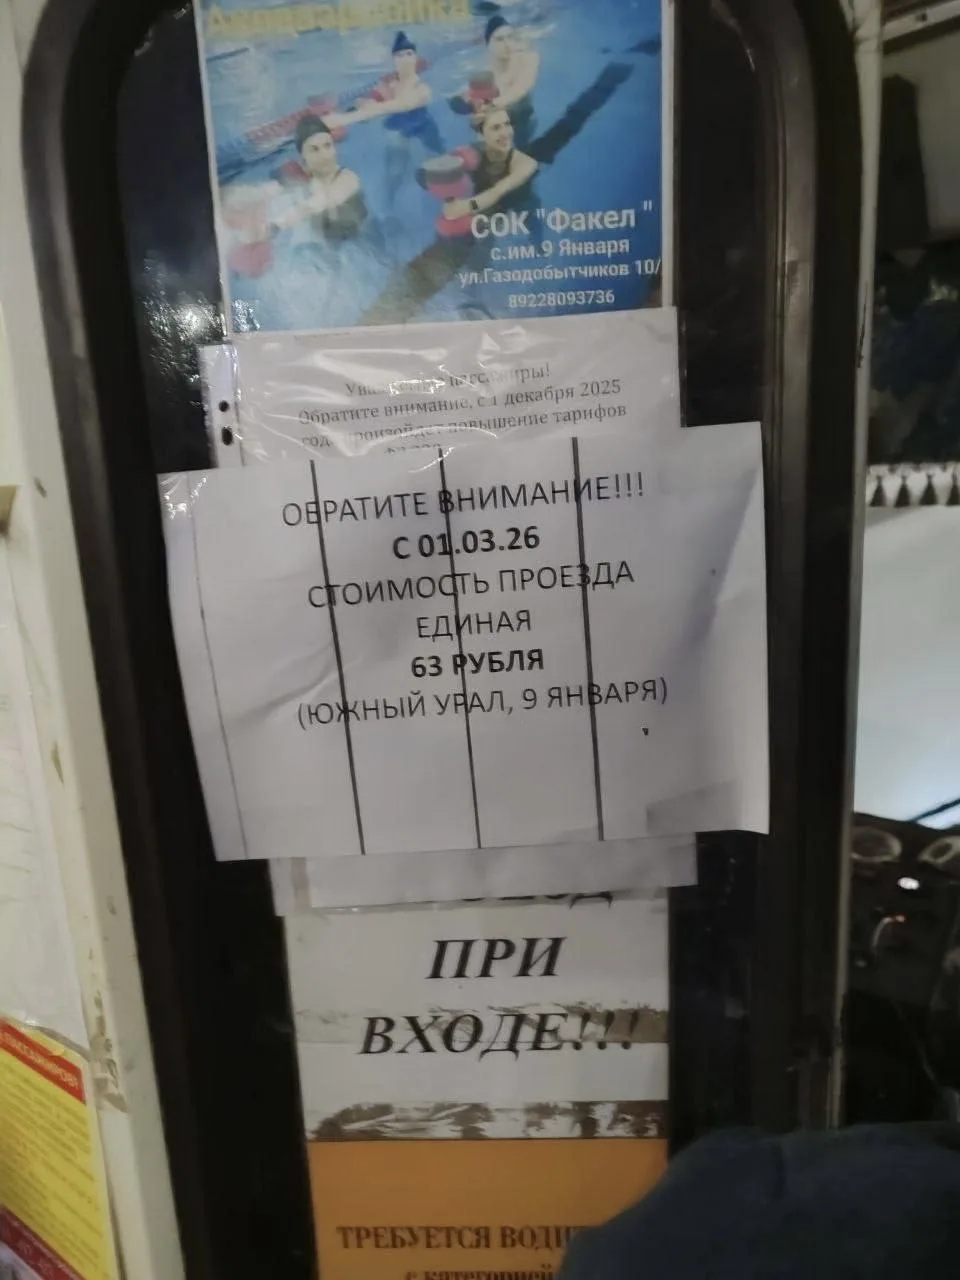 Аквааэробика
СОК "Факел "
с.им.9 Января
ул.Газодобытчиков 10/
89228093736
Уважаемые пассажиры!
Обратите внимание, с 1 декабря 2025
года произойдет повышение тарифов
ОБРАТИТЕ ВНИМАНИЕ!!!
С 01.03.26
СТОИМОСТЬ ПРОЕЗДА
ЕДИНАЯ
63 РУБЛЯ
(ЮЖНЫЙ УРАЛ, 9 ЯНВАРЯ)
ПРИ
ВХОДЕ!!!
ТРЕБУЕТСЯ ВОДИ
с категорией